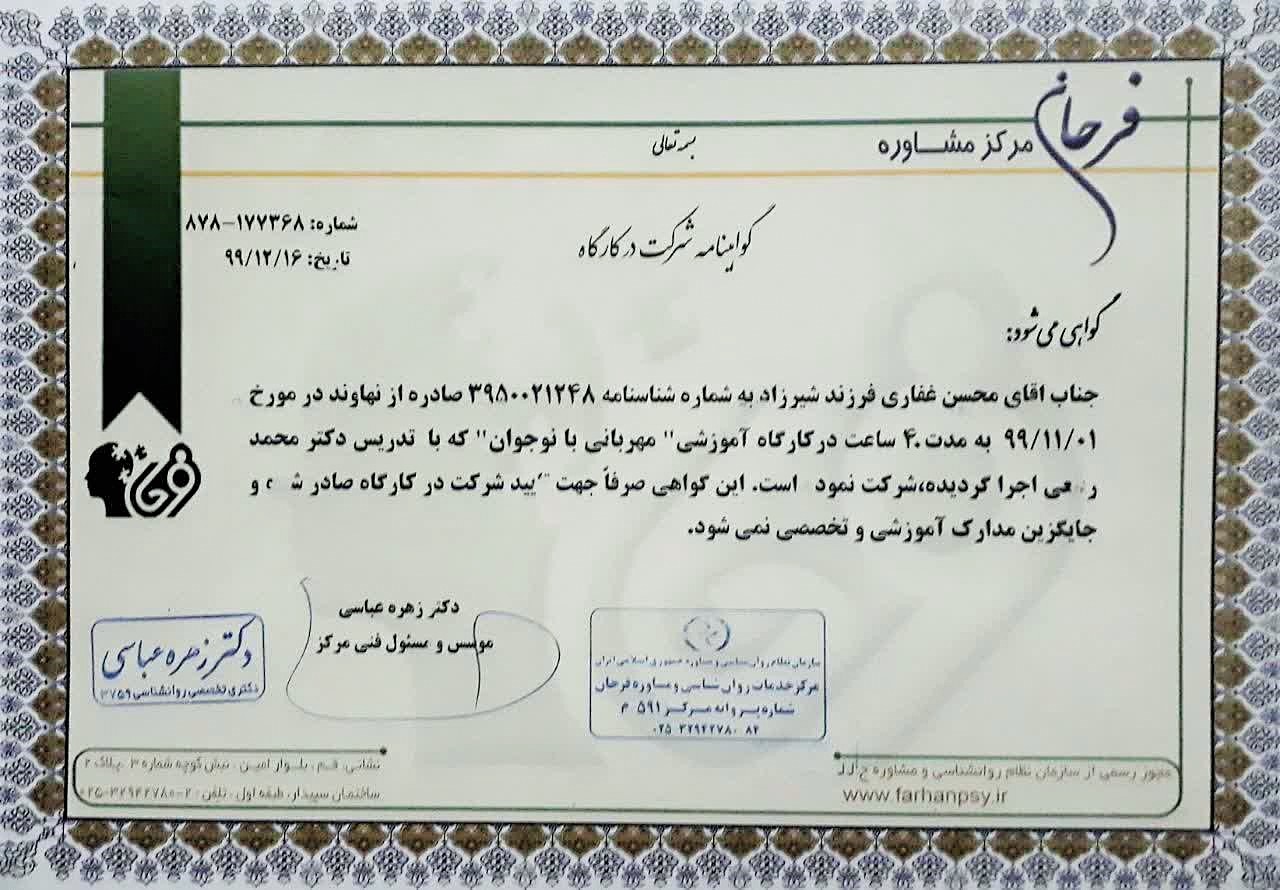 فرحان
مرکز مشاوره
بسمه تعالی
شماره: ۱۷۷۳۶۸-۸۷۸
تاریخ: ۹۹/۱۲/۱۶
گواهینامه شرکت در کارگاه
گواهی می شود:
جناب اقای محسن غفاری فرزند شیرزاد به شماره شناسنامه ۳۹۵۰۰۲۱۲۴۸ صادره از نهاوند در مورخ
۹۹/۱۱/۰۱ به مدت ۴۰ ساعت در کارگاه آموزشی" مهربانی با نوجوان" که با تدریس دکتر محمد
اجرا گردیده،شرکت نمود است. این گواهی صرفاً جهت شرکت در کارگاه صادر و
جایگزین مدارک آموزشی و تخصصی نمی شود.
فرحان
دکتر زهره عباسی
موسس و مسئول فنی مرکز
دکتر زهره عباسی
دکتری تخصصی روانشناسی ۳۷۵۹
سازمان نظام روان شناسی و مشاوره جمهوری اسلامی ایران
مرکز خدمات روان شناسی و مشاوره فرحان
شماره پروانه مرکز ۵۹۱ م
۰۲۵ ۳۲۹۴۲۷۸۰ ۸۲
نشانی: قم ، بلوار امین ، نبش کوچه شماره ۳ ،پلاک ۲
ساختمان سپیدار، طبقه اول ، تلفن : ۲-۰۲۵-۳۲۹۴۲۷۸۰
مجوز رسمی از سازمان نظام روانشناسی و مشاوره ج.ا.ا
www.farhanpsy.ir